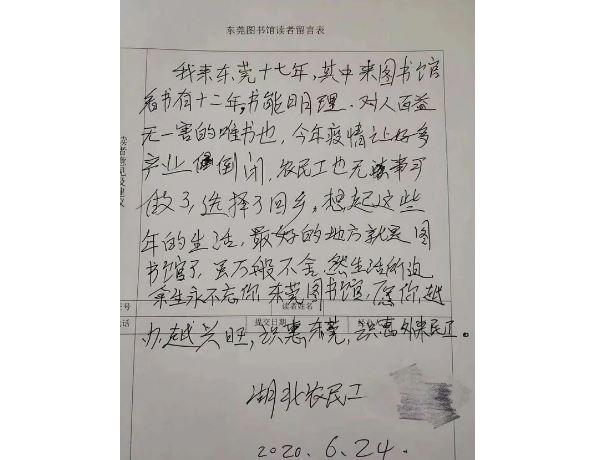 东莞图书馆读者留言表
我来东莞十七年,其中来图书馆
看书有十二年,书能明理,对人百益
无一害的唯书也,今年疫情让好多
产业倒闭,农民工也无事可
做了,选择了回乡,想起这些
年的生活,最好的地方就是图
书馆了,虽万般不舍,然生活所迫
余生永不忘你东莞图书馆,愿你越
办越兴旺,识惠东莞,识惠外来民工。
读者姓名
提交日期
湖北农民工
2020.6.24.